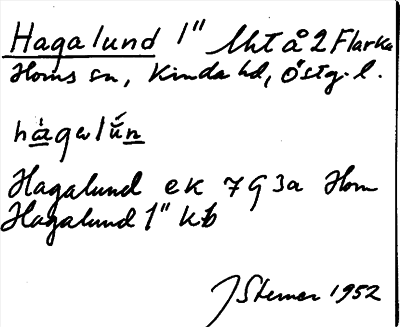 Hagalund 1" lht å 2 Flarka
Horns sn, Kinda hd, Östg. l.
hagalun
Hagalund ek 7G3a Horn
Hagalund 1" kb
J Sterner 1952